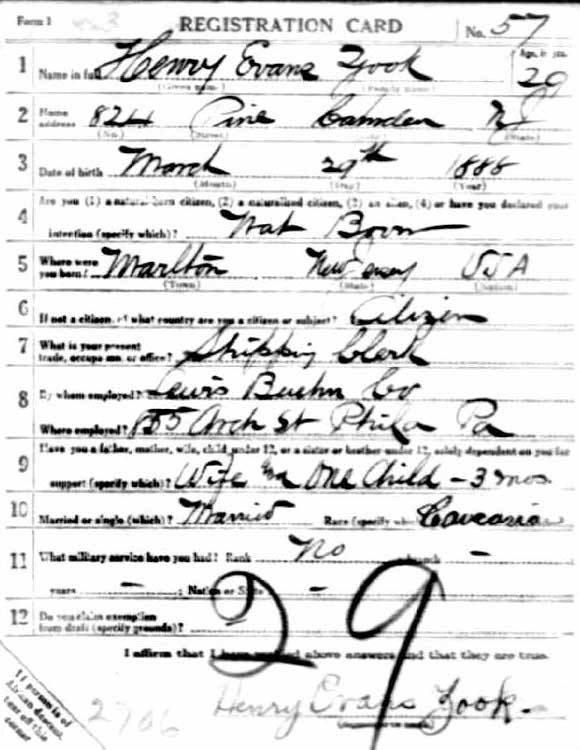 Form 1
REGISTRATION CARD
No. 57
1 Name in full Henry Evans Zook
(Given name) (Family name)
Age, in yrs.
29
2 Home address 824 Pine Camden NJ
(No.) (Street) (State)
3 Date of birth March 29th 1888
(Month) (Day) (Year)
4 Are you (1) a natural-born citizen, (2) a naturalized citizen, (3) an alien, (4) or have you declared your
intention (specify which)? Nat Born
5 Where were you born? Marlton New Jersey USA
(Town) (State) (Nation)
6 If not a citizen, of what country are you a citizen or subject? Citizen
7 What is your present trade, occupation, or office? Shipping Clerk
8 By whom employed? Lewis Buehn Co
Where employed? Arch St Phila Pa
9 Have you a father, mother, wife, child under 12, or a sister or brother under 12, solely dependent on you for
support (specify which)? Wife One Child - 3 mos
10 Married or single (which)? Married Race (specify which) Caucasian
11 What military service have you had? Rank No branch -
years - ; Nation or State -
12 Do you claim exemption from draft (specify grounds)?
29
I affirm that I have verified above answers and that they are true.
2706
Henry Evans Zook
If person is of African descent, tear off this corner